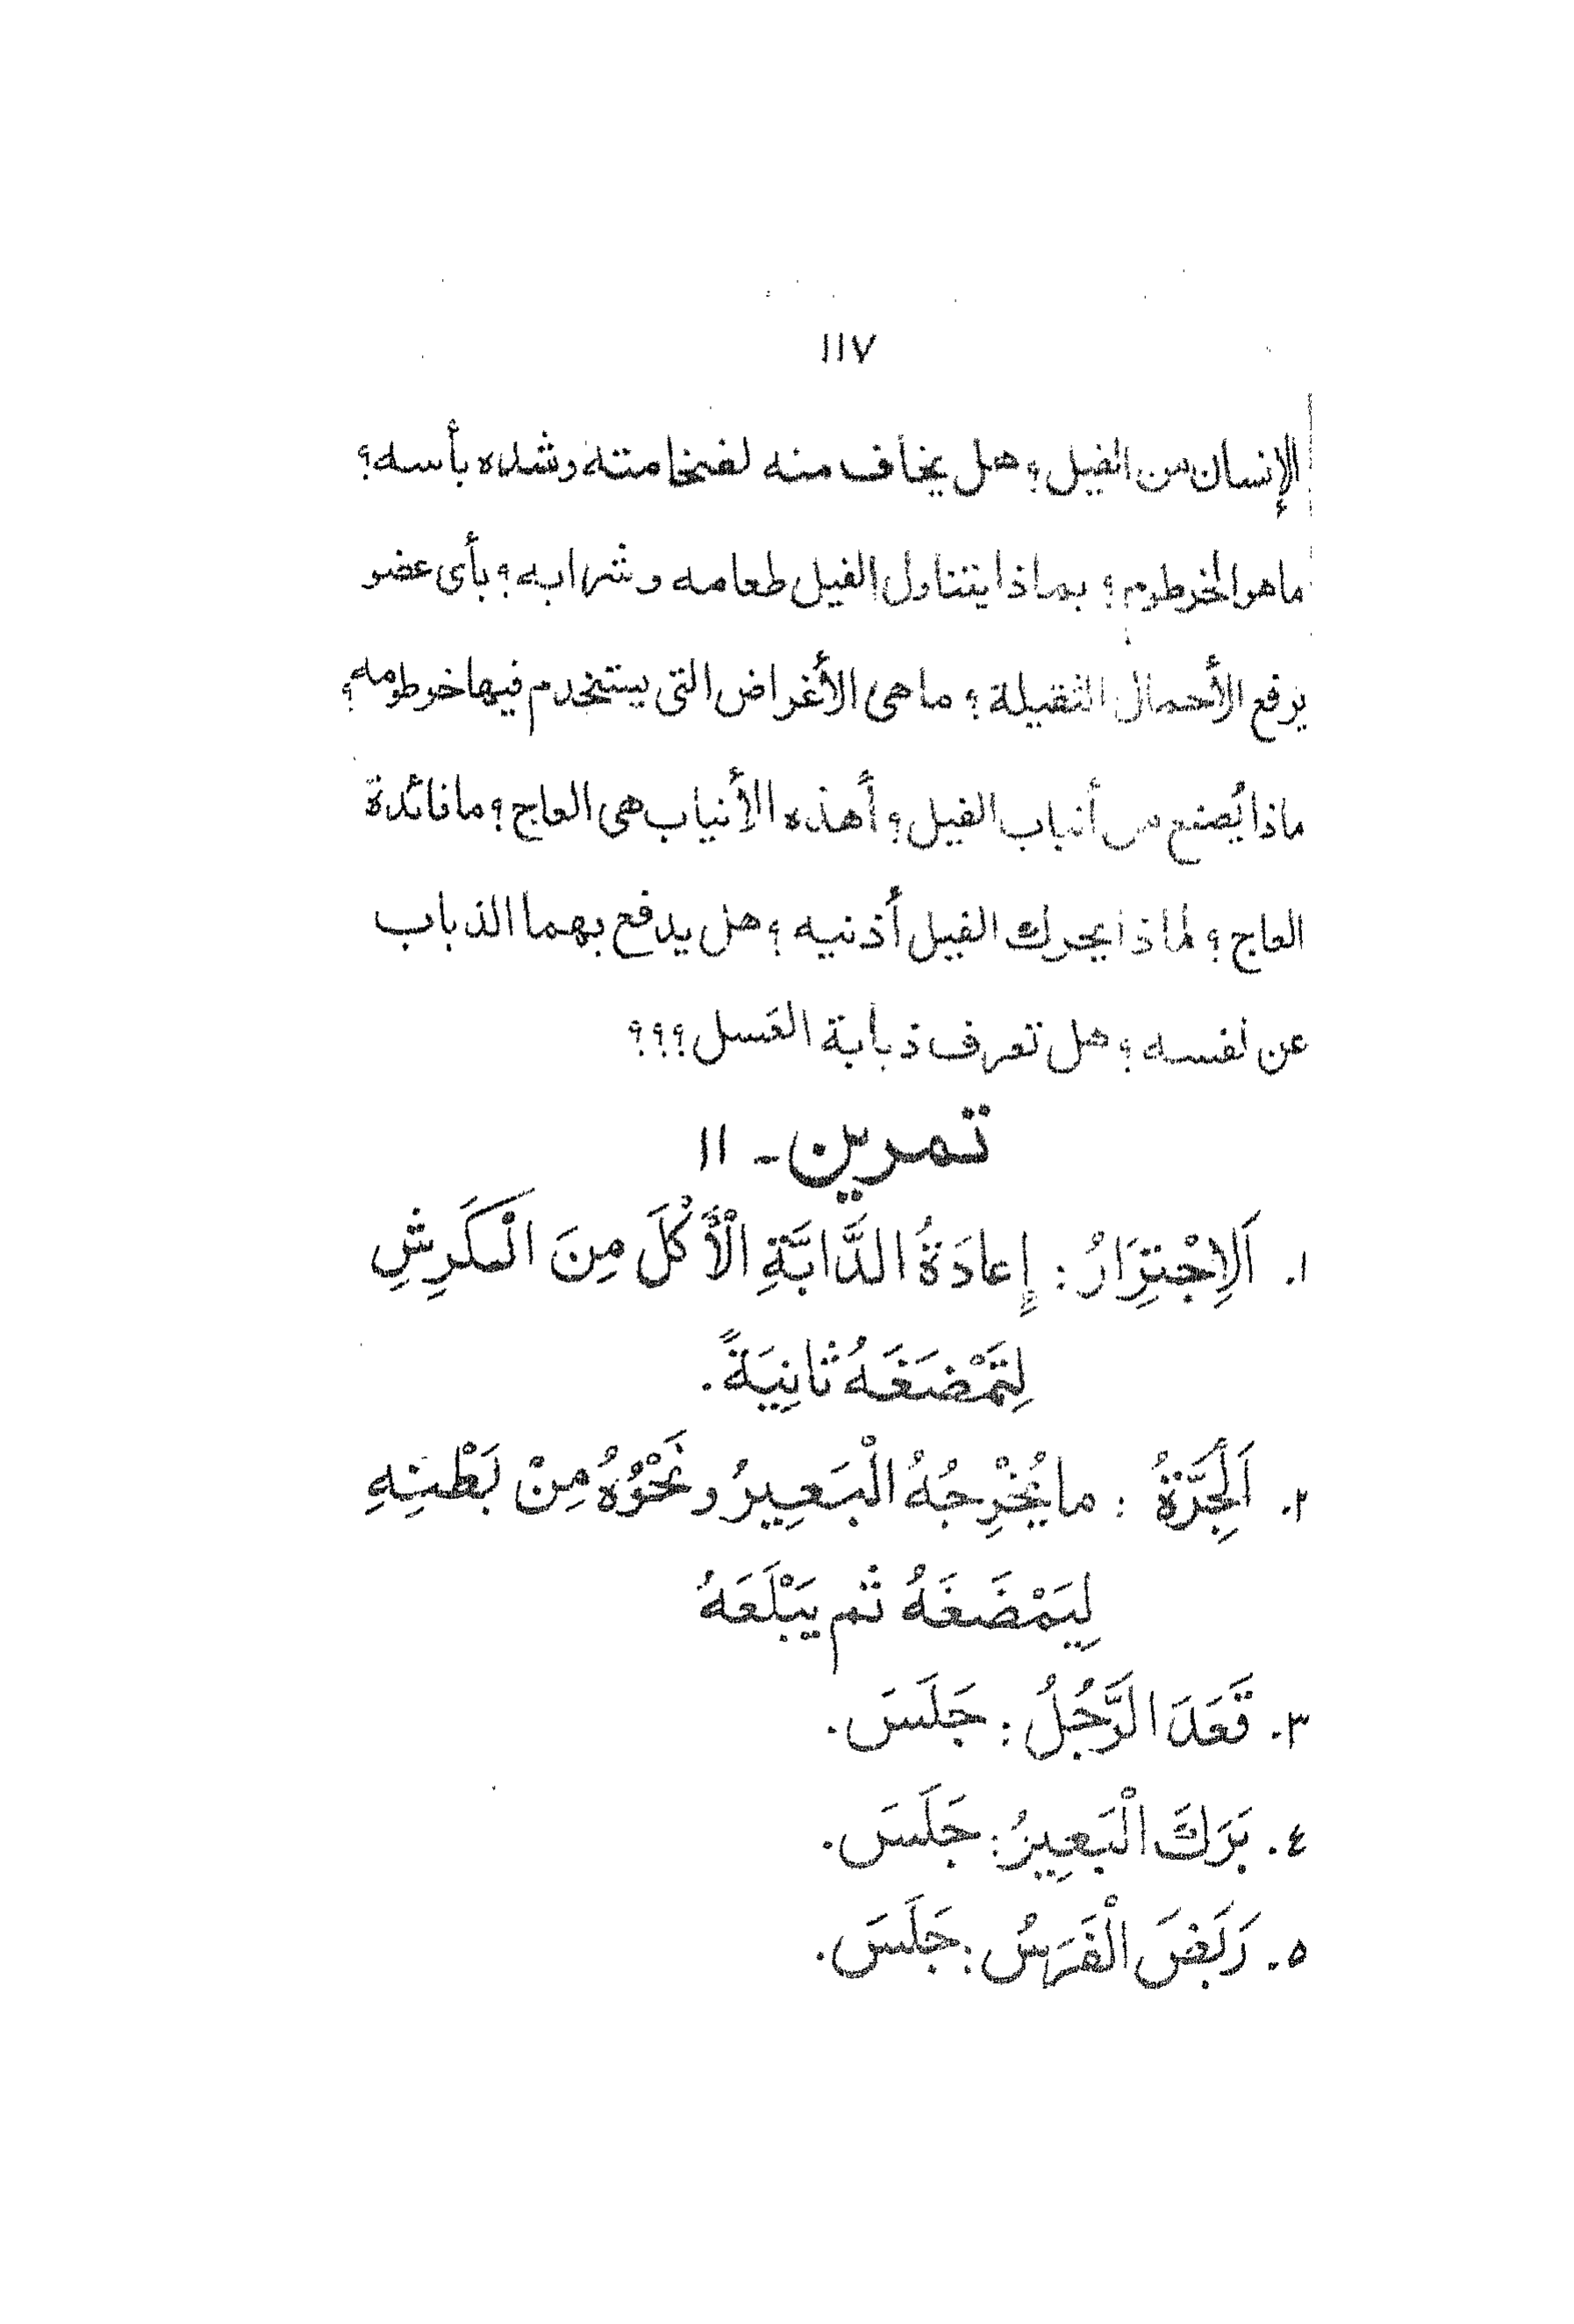 ١١٧
الإنسان من الفيل؟ هل يخاف منه لضخامته وشده بأسه؟
ما هو الخرطوم؟ بماذا يتناول الفيل طعامه وشرابه؟ بأى عضو
يرفع الأحمال الثقيلة؟ ما هى الأغراض التى يستخدم فيها خرطومه؟
ماذا يُصنع من أنياب الفيل؟ أهذه الأنياب هى العاج؟ ما فائدة
العاج؟ لماذا يحرك الفيل أذنيه؟ هل يدفع بهما الذباب
عن نفسه؟ هل تعرف ذبابة العَسل؟؟؟
تمرين - ١١
١. اَلِاجْتِرَارُ: إِعادَةُ الدَّابَّةِ الْأَكْلَ مِنَ الْكَرِشِ
لِتَمْضَغَهُ ثانِيَةً.
٢. اَلْجِرَّةُ: ما يُخْرِجُهُ الْبَعِيرُ ونَحْوُهُ مِنْ بَطْنِهِ
لِيَمْضَغَهُ ثم يَبْلَعَهُ
٣. قَعَدَ الرَّجُلُ: جَلَسَ.
٤. بَرَكَ الْبَعِيرُ: جَلَسَ.
٥. رَبَضَ الْفَرَسُ: جَلَسَ.